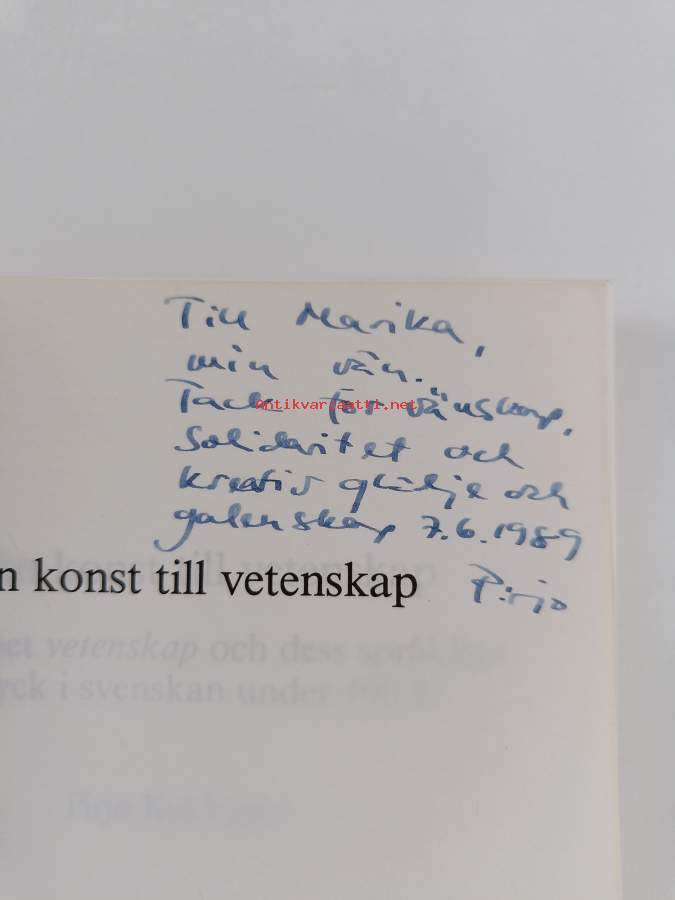 Till Marika,
min vän.
Tack för vänskap,
Antikvariaatti.net
solidaritet och
kreativ glädje och
galenskap 7.6.1989
Pirjo
n konst till vetenskap
et vetenskap och dess språkliga
yck i svenskan under 400 år
Pirjo